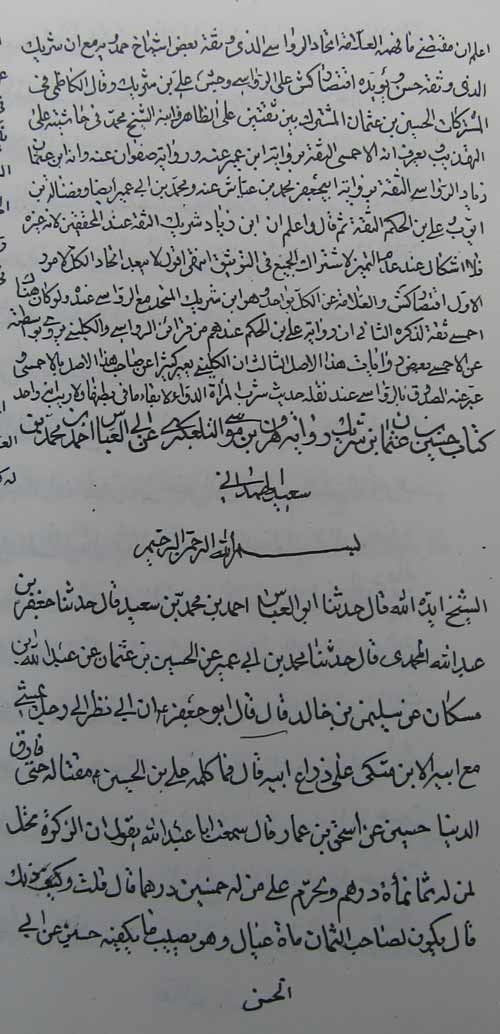 اعلم ان مقتضى ما فهمه العلامة اتحاد الرواسي الذي وثقه بعض اشياخ حمدويه مع ابن شريك
الذي وثقه حسن ويؤيده اقتصار كش على الرواسي وجش على بن شريك وقال الكاظمي في
المشتركات الحسين بن عثمان المشترك بين ثقتين على الظاهر وابنه الشيخ محمد في حاشيته على
التهذيب ويعرف انه الاحمسي الثقة برواية ابن ابي عمير عنه ورواية صفوان عنه وانه ابن عثمان بن
زياد الرواسي الثقة برواية ابي جعفر محمد بن عياش عنه ومحمد بن ابي عمير ايضا وفضالة بن
ايوب وعلي بن الحكم الثقة ثم قال واعلم ان ابن زياد شريك الثقة عند المحققين لا غيره
فلا اشكال عند عدم التميز لاشتراك الجميع في التوثيق انتهى اقول لا يبعد اتحاد الكل لامور
الاول اقتصار كش والعلامة عن الكل بواحد وهو ابن شريك المتحد مع الرواسي عنده ولو كان هنا
احمسي ثقة لذكره الثاني ان رواية علي بن الحكم عندهم من قرائن الرواسي والكليني يروي بواسطته
عن الاحمسي بعض روايات هذا الاصل الثالث ان الكليني يعبر كثيرا عن صاحب هذا الاصل بالاحمسي و
عبر عنه الصدوق بالرواسي عند نقله حديث شرب المرأة الدواء لابقاء ما في بطنها ولا ريب انه واحد
كتاب حسين بن عثمان بن شريك رواية هرون بن موسى التلعكبري عن ابي العباس احمد بن محمد بن
سعيد الهمداني
بسم الله الرحمن الرحيم
الشيخ ايده الله قال حدثنا ابو العباس احمد بن محمد بن سعيد قال حدثنا جعفر بن
عبد الله المحمدي قال حدثنا محمد بن ابي عمير عن الحسين بن عثمان عن عبد الله بن
مسكان عن سليمن بن خالد قال قال ابو جعفر ع ان ابي نظر الى رجل يمشي
مع ابيه الابن متكى على ذراع ابيه قال فما كلمه علي بن الحسين ع مقتا له حتى فارق
الدنيا حسين عن اسحق بن عمار قال سمعت ابا عبد الله يقول ان الزكوة تحل
لمن له ثمانمأة درهم وتحرم على من له خمسين درهما قال قلت وكيف ذلك
قال يكون لصاحب الثمان ماة عيال وهو يصيب ما يكفيه حسين عن ابي
الحسن